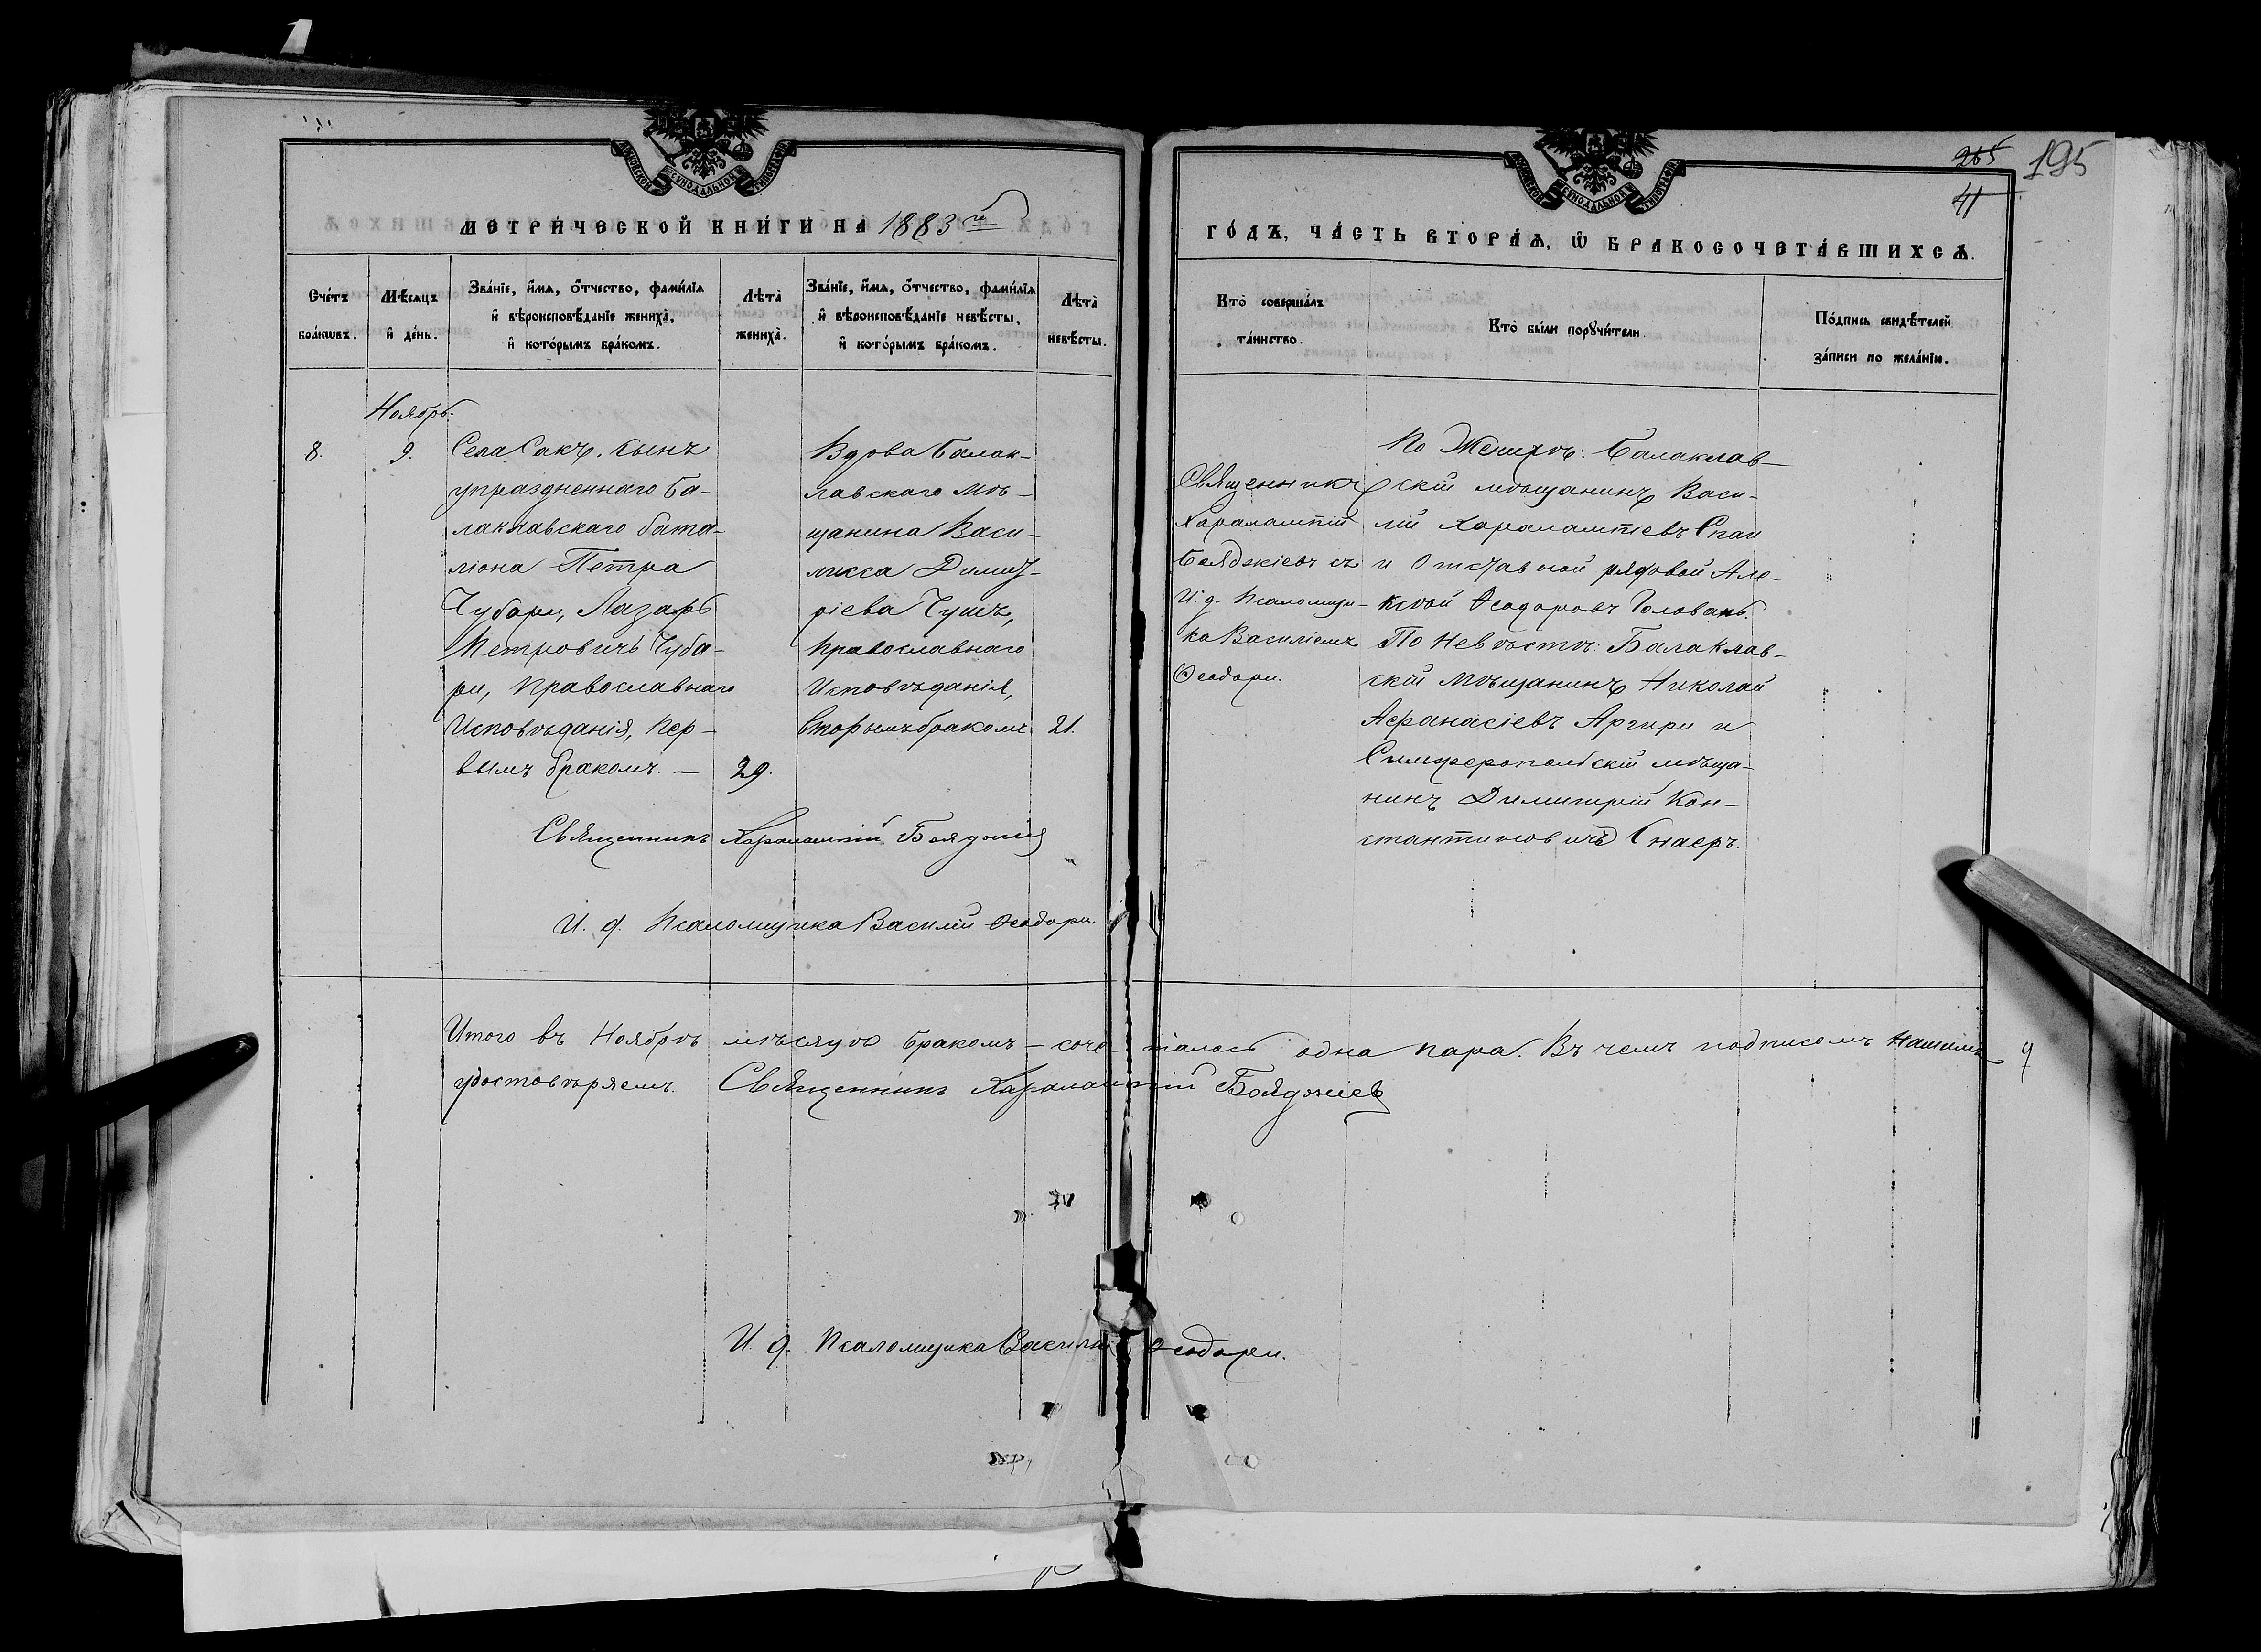 265 195
41
МОСКОВСКОЙ СѴНОДАЛЬНОЙ ТИПОГРАФІИ
МОСКОВСКОЙ СѴНОДАЛЬНОЙ ТИПОГРАФІИ
МЕТРИ́ЧЕСКОЙ КНИ́ГИ НА 1883 й
ГО́ДЪ, ЧА́СТЬ ВТОРА́Ѧ, Ѽ БРАКОСОЧЕТА́ВШИХСѦ.
Сче́тъ бра́кѡвъ.
Мѣ́сѧцъ и҆ де́нь.
Зва́нїе, и҆́мѧ, ѻ҆́тчество, фами́лїѧ
и҆ вѣроисповѣ́данїе жениха̀,
и҆ кото́рымъ бра́комъ.
Лѣта̀ жениха̀.
Зва́нїе, и҆́мѧ, ѻ҆́тчество, фами́лїѧ
и҆ вѣроисповѣ́данїе невѣ́сты,
и҆ кото́рымъ бра́комъ.
Лѣта̀ невѣ́сты.
Кто̀ соверша́лъ
та́инство.
Кто̀ бы́ли порꙋчи́тели
По́дпись свидѣ́телей
за́писи по жела́нїю.
Ноябрь.
8.
9.
Села Сакъ, сынъ
упраздненнаго Ба-
лаклавскаго бата-
ліона Петра
Чубари, Лазарь
Петровичъ Чуба-
ри, православнаго
Исповѣданія, пер-
вымъ бракомъ. —
29.
Вдова Балак-
лавскаго мѣ-
щанина Васи-
лисса Димит-
ріева Чушъ,
православнаго
Исповѣданія,
вторымъ бракомъ
21.
Священникъ
Харалампій
Бояджіевъ съ
И. д. Псаломщи-
ка Василіемъ
Ѳеодори.
По Женихѣ: Балаклав-
скій мѣщанинъ Васи-
лій Харалампіевъ Спаи
и Отставной рядовой Але-
ксѣй Ѳеодоровъ Головань.
По Невѣстѣ: Балаклав-
скій мѣщанинъ Николай
Аѳанасіевъ Аргири и
Симферопольскій мѣща-
нинъ Димитрій Кон-
стантиновичъ
Священникъ Харалампій Бояджіев
И. д. Псаломщика Василій Ѳеодори.
Итого въ Ноябрѣ мѣсяцѣ бракомъ — соче-талось одна пара. Въ чемъ подписомъ нашимъ
удостовѣряемъ. Священникъ Харалампій Бояджіев
И. д. Псаломщика Василій Ѳеодори.